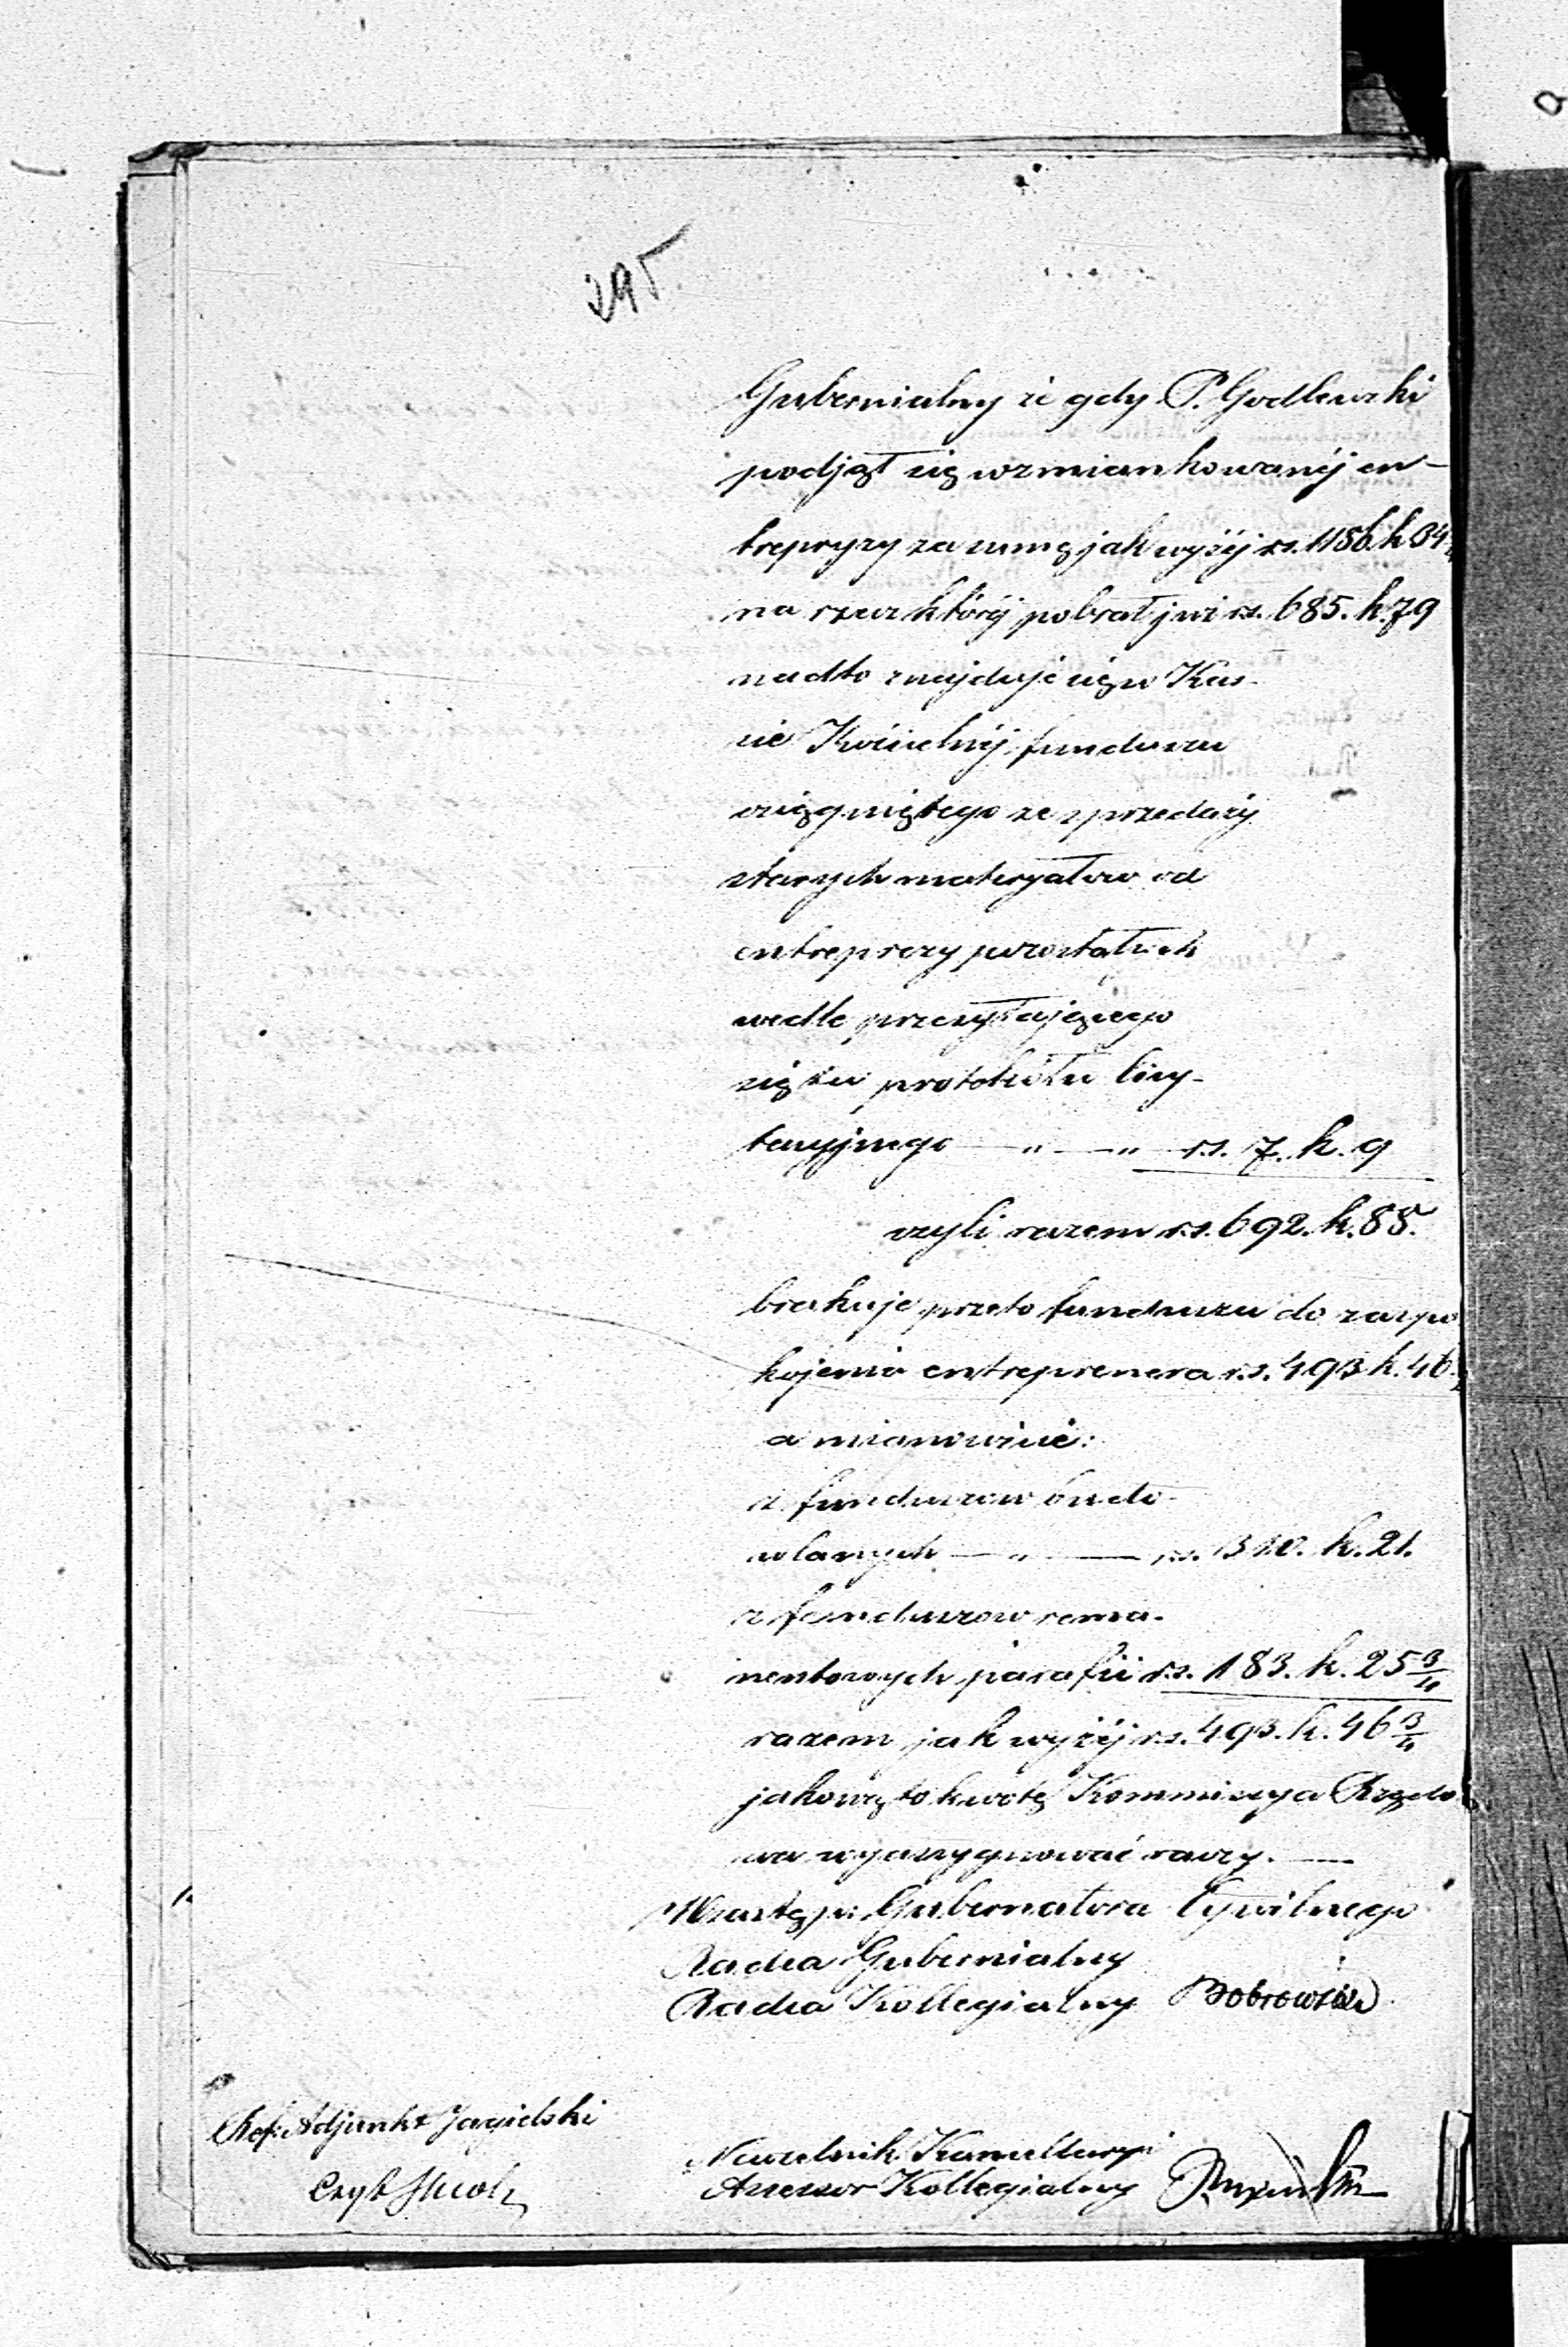 295
Gubernialny że gdy P. Godlewski
podjął się wzmiankowanéj en-
trepryzy za sumę jak wyżéj rs. 1186. k 34
na rzecz któréj pobrał już rs. 685. k. 79
nadto znajduje się w Kas-
sie Kościelnéj funduszu
osiągniętego ze sprzedaży
starych materyałow od
entrepryzy pozostałych
wedle przesyłającego
się tu protokółu licy-
tacyjnego — „ — „ rs. 7. k. 9
czyli razem rs. 692. k. 88.
brakuje przeto funduszu do zaspo
kojenia entreprenera rs. 493 k. 46
a mianowicie:
z funduszow budo-
wlanych — „ — rs. 310. k. 21.
z funduszow rema-
nentowych parafii rs. 183. k. 25 3/4
razem jak wyżéj rs. 493. k. 46 3/4
jakową to kwotę Kommissya Rządo
wa wyassygnować raczy. —
W zastęp: Gubernatora Cywilnego
Radca Gubernialny
Radca Kollegialny Bobrowski
Ref. Adjunkt Jagielski
Naczelnik Kancellaryi
Assessor Kollegialny
Czyt